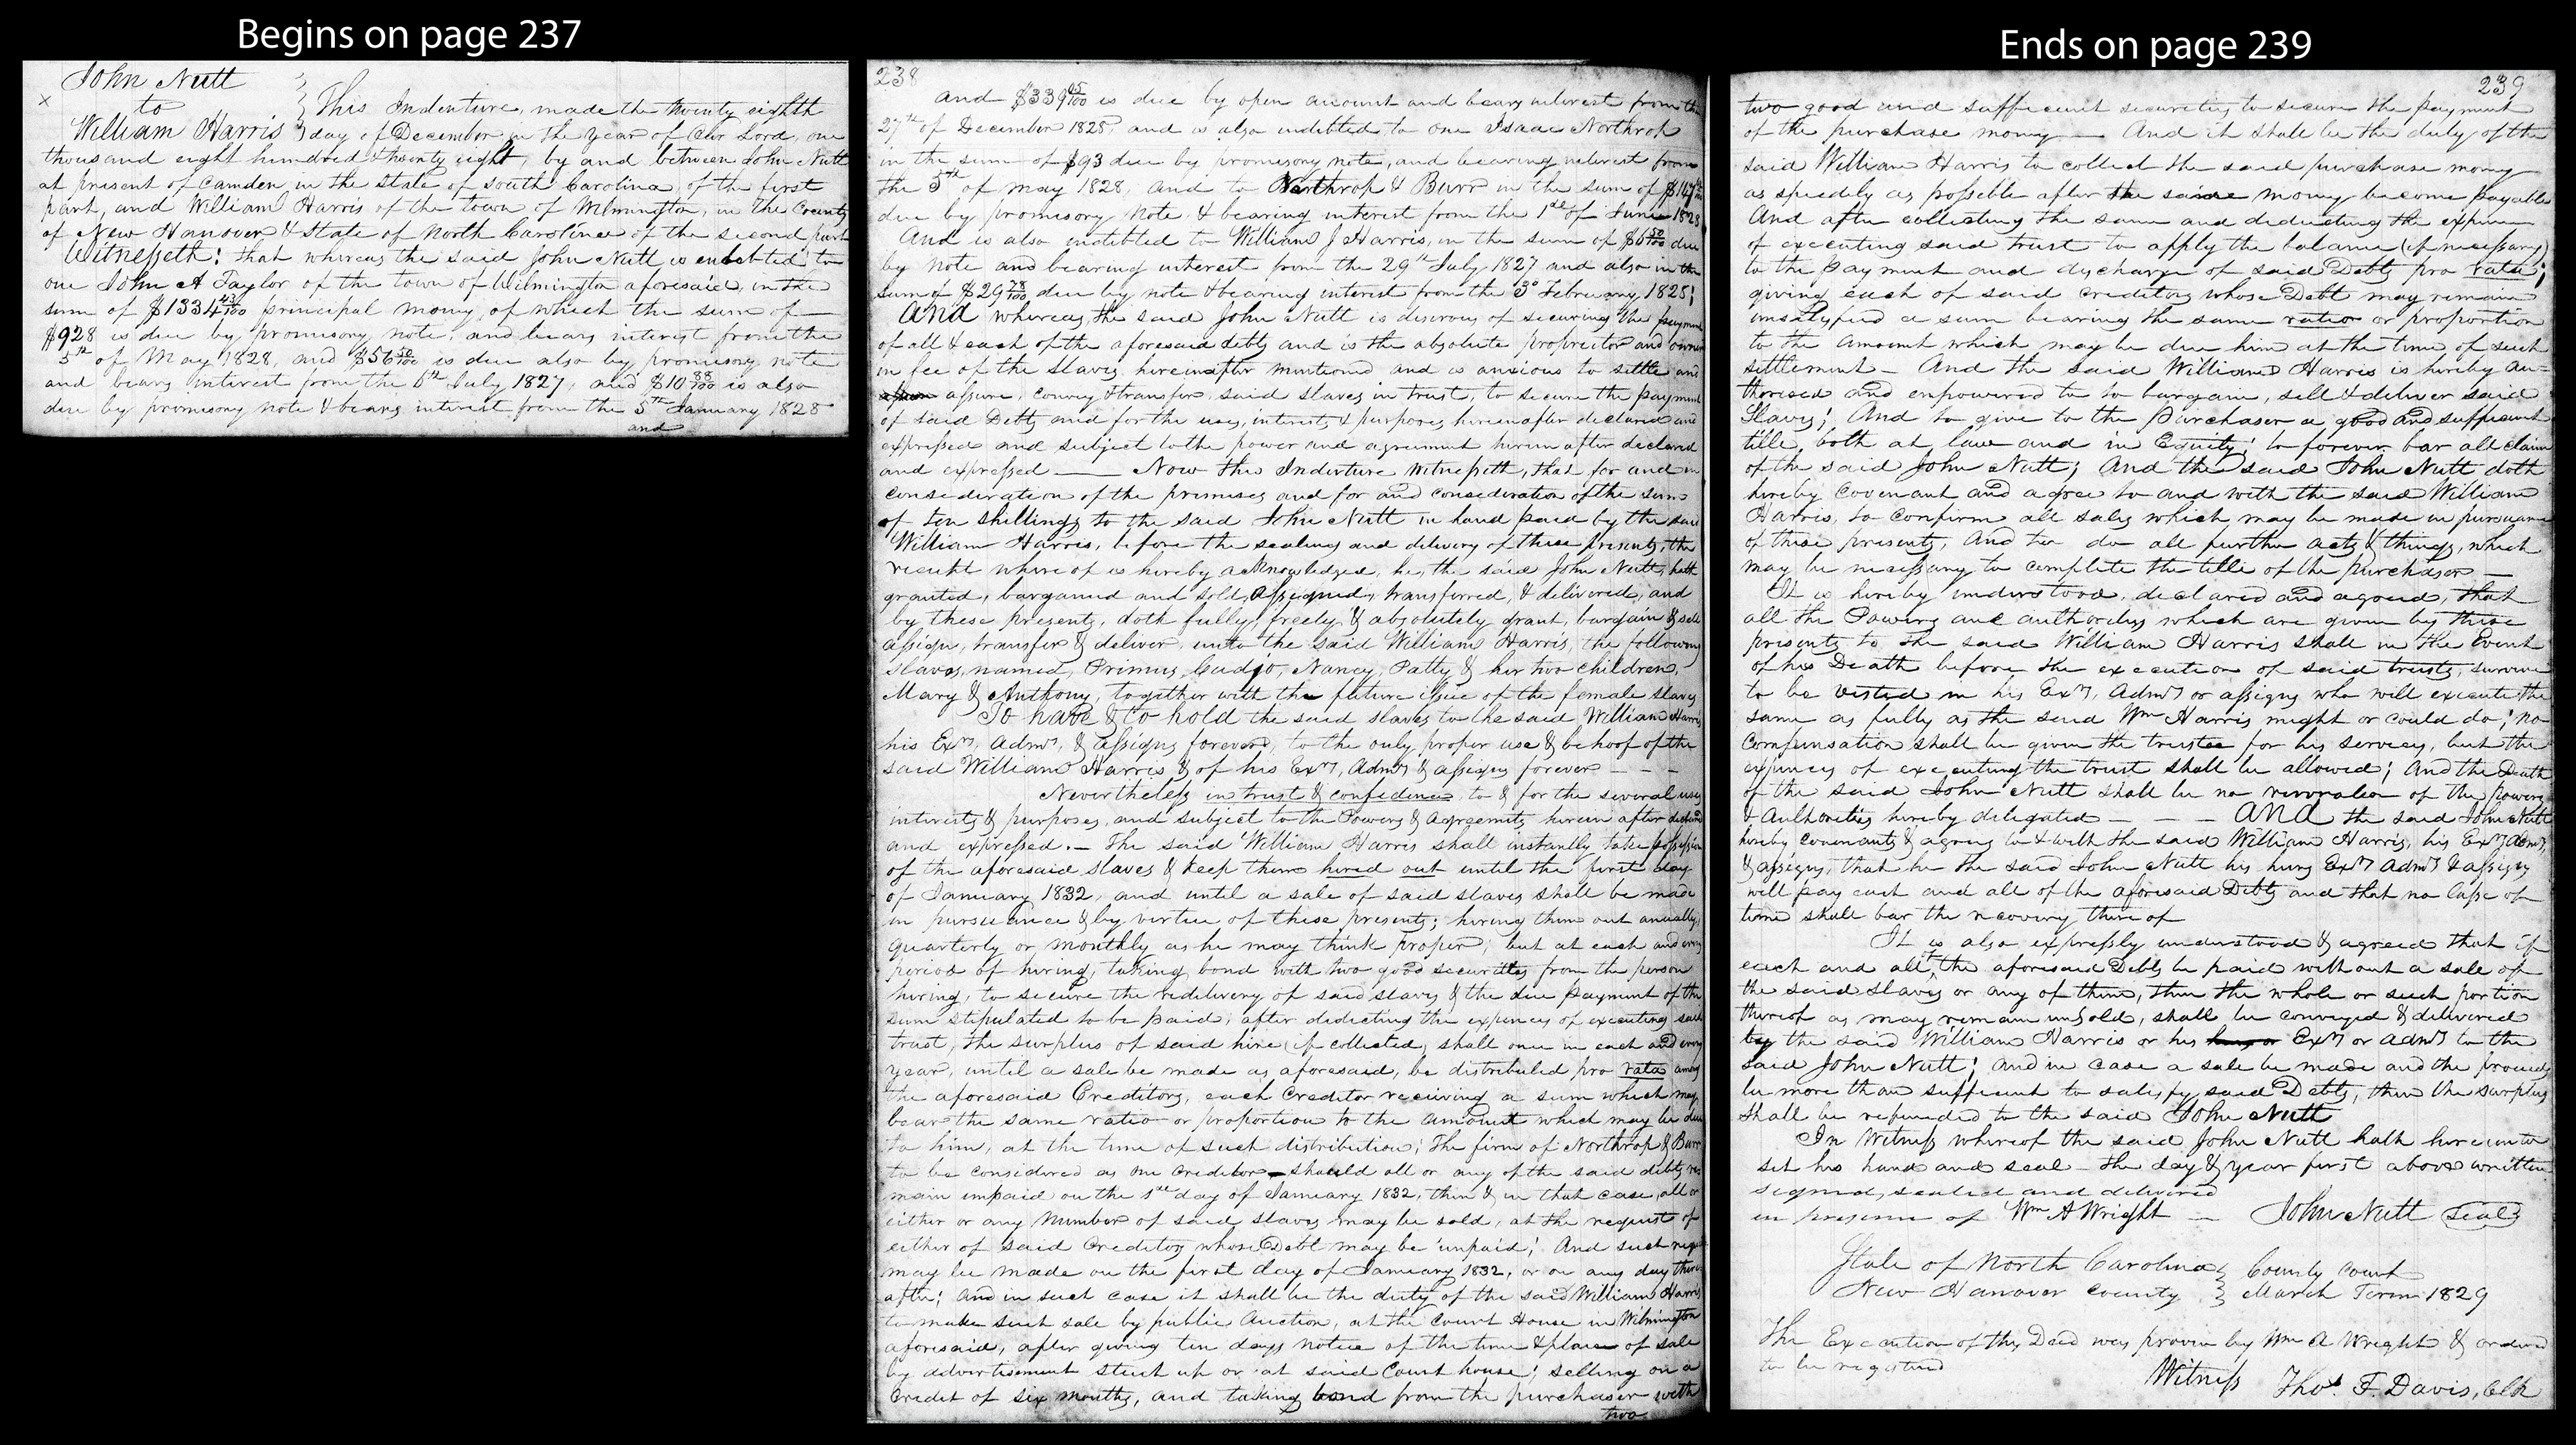 Begins on page 237
John Nutt
to
This Indenture, made the twenty eighth
William Harris day of December in the year of Our Lord, one
thousand eight hundred & twenty eight, by and between John Nutt
at present of Camden, in the State of South Carolina, of the first
part, and William Harris of the town of Wilmington, in the County
of New Hanover & State of North Carolina of the second part
Witnesseth: that whereas the said John Nutt is indebted to
one John A Taylor of the town of Wilmington aforesaid, in the
sum of $1334 43/100 principal money, of which the sum of
$928 is due by promisory note, and bears interest from the
5th of May 1828, and $56 50/100 is due also by promisory note
and bears interest from the 6th July 1827, and $10 88/100 is also
due by promisory note & bears interest from the 5th January 1828
and
238
and $339 05/100 is due by open account and bears interest from the
27th of December 1828, and is also indebted to one Isaac Northrop
in the sum of $93 due by promisory note, and bearing interest from
the 5th of May 1828, and to Northrop & Burr in the sum of $147
due by promisory note & bearing interest from the 1st of June 1828
And is also indebted to William J Harris, in the sum of $6 50/100 due
by note and bearing interest from the 29th July 1827 and also in the
sum of $29 78/100 due by note & bearing interest from the 3d February, 1825;
And whereas, the said John Nutt is desirous of securing the payment
of all & each of the aforesaid debts and is the absolute proprietor and owner
in fee of the slaves hereinafter mentioned and is anxious to settle and
assure, convey & transfer, said slaves in trust, to secure the payment
of said Debts and for the uses, interests & purposes hereinafter declared and
expressed and subject to the power and agreement herein after declared
and expressed — Now this Indenture Witnesseth, that, for and in
consideration of the premises and for and consideration of the sum
of ten shillings to the said John Nutt in hand paid by the said
William Harris, before the sealing and delivery of these presents, the
receipt where of is hereby acknowledged, he, the said John Nutt, hath
granted, bargained and sold, Assigned, transferred, & delivered, and
by these presents, doth fully, freely & absolutely grant, bargain & sell
assign, transfer & deliver, unto the said William Harris, the following
slaves, named, Primus, Cudjo, Nancy, Patty & her two children,
Mary & Anthony, together with the future issue of the female slaves
To have & to hold the said slaves to the said William Harris
his Exrs, Admrs, & assigns forever, to the only proper use & behoof of the
said William Harris & of his Exrs, Admrs & assigns forever — — —
Nevertheless in trust & confidence, to & for the several uses
interests & purposes, and subject to the Powers & Agreements herein after declared
and expressed. — The said William Harris shall instantly take possession
of the aforesaid slaves & keep them hired out until the first day
of January 1832, and until a sale of said slaves shall be made
in pursuance & by virtue of these presents; hiring them out annually,
quarterly or monthly as he may think proper; but at each and every
period of hiring, taking bond with two good securities from the person
hiring, to secure the redelivery of said slaves & the due payment of the
sum stipulated to be paid; after dedicting the expences of executing said
trust, the surplus of said hire (if collected) shall once in each and every
year, until a sale be made as aforesaid, be distributed pro rata among
the aforesaid Creditors, each Creditor receiving a sum which may
bear the same ratio or proportion to the amount which may be due
to him, at the time of such distribution; the firm of Northrop & Burr
to be considered as one creditor — should all or any of the said debts re
main unpaid on the 1st day of January 1832, then & in that case, all or
either or any Number of said slaves may be sold, at the request of
either of said Creditors whose Debt may be unpaid; And such request
may be made on the first day of January 1832, or on any day there
after; And in such case it shall be the duty of the said William Harris
to make such sale by public Auction, at the Court House in Wilmington
aforesaid, after giving ten days notice of the time & place of sale
by advertisement stuck up or at said Court house; selling on a
Credit of six months, and taking bond from the purchaser with
two
Ends on page 239
239
two good and sufficient securities to secure the payment
of the purchase money — And it shall be the duty of the
said William Harris to collect the said purchase money
as speedily as possible after the same money become payable
And after collecting the same and dedicting the expence
of executing said trust to apply the balance (if necessary)
to the payment and discharge of said Debts pro rata;
giving each of said creditors whose Debt may remain
unsatisfied a sum bearing the same ratio or proportion
to the amount which may be due him at the time of such
settlement — And the said William Harris is hereby au-
thorised and empowered to so bargain, sell & deliver said
Slaves; And to give to the Purchaser a good and sufficient
title, both at law and in Equity; to forever bar all claim
of the said John Nutt; And the said John Nutt doth
hereby Covenant and agree to and with the said William
Harris, to confirm all sales which may be made in pursuance
of these presents, And to do all further acts & things, which
may be necessary to complete the title of the purchaser —
It is hereby understood, declared and agreed, that
all the Powers and authorities which are given by these
presents to the said William Harris shall in the Event
of his Death before the execution of said trusts, survive
to be vested in his Exrs, Admrs or assigns who will execute the
same as fully as the said Wm Harris might or could do; no
Compensation shall be given the trustee for his services, but the
expences of executing the trust shall be allowed; And the Death
of the said John Nutt shall be no revocation of the powers
& Authorities hereby delegated — — — And the said John Nutt
hereby covenants & agrees to & with the said William Harris, his Exrs Admrs,
& assigns, that he the said John Nutt his heirs Exrs Admrs & assigns
will pay each and all of the aforesaid Debts and that no lapse of
time shall bar the recovery there of
It is also expressly understood & agreed that if
each and all of the aforesaid Debts be paid without a sale of
the said slaves or any of them, then the whole or such portion
thereof as may remain unsold, shall be conveyed & delivered
by the said William Harris or his heirs or Exrs or Admrs to the
said John Nutt; and in case a sale be made and the proceeds
be more than sufficient to satisfy said Debts, then the surplus
shall be refunded to the said John Nutt
In Witness whereof the said John Nutt hath hereunto
set his hand and seal — the day & year first above written
signed, sealed and delivered
in presence of Wm A Wright — John Nutt (seal)
State of North Carolina County Court
New Hanover County March Term 1829
The Execution of this Deed was proven by Wm A Wright & ordered
to be registered
Witness Thos. F. Davis, Clk